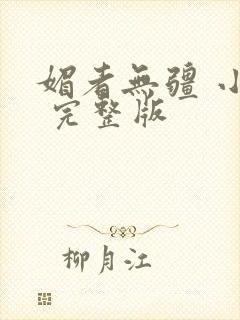 媚者無疆 小
完整版
柳月江